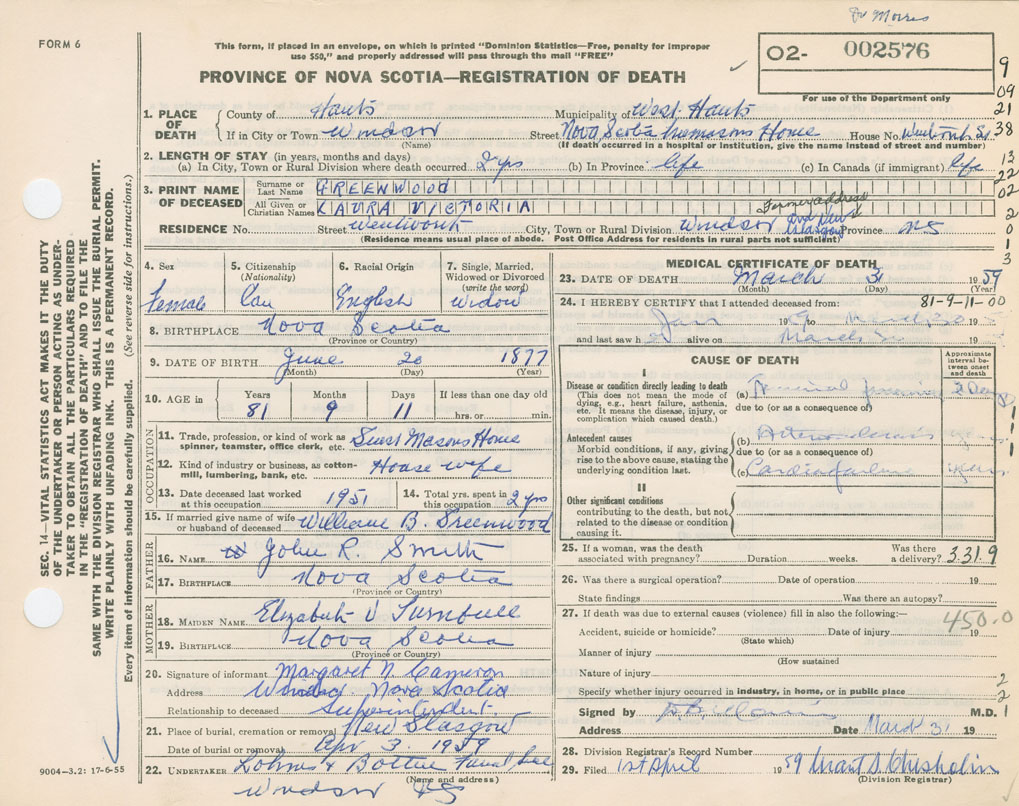 Dr Morris
FORM 6
This form, if placed in an envelope, on which is printed "Dominion Statistics—Free, penalty for improper
use $50," and properly addressed will pass through the mail "FREE"
O2- 002576
For use of the Department only
PROVINCE OF NOVA SCOTIA—REGISTRATION OF DEATH
1. PLACE OF DEATH
County of Hants Municipality of West Hants
If in City or Town Windsor Street Nova Scotia Freemasons Home House No.
(Name) (If death occurred in a hospital or institution, give the name instead of street and number)
2. LENGTH OF STAY (in years, months and days)
(a) In City, Town or Rural Division where death occurred 2 yrs (b) In Province life (c) In Canada (if immigrant) life
3. PRINT NAME OF DECEASED
Surname or Last Name GREENWOOD
All Given or Christian Names LAURA VICTORIA
Former address
RESIDENCE No. Street Wentworth City, Town or Rural Division Windsor Glasgow Province NS
(Residence means usual place of abode. Post Office Address for residents in rural parts not sufficient)
4. Sex Female
5. Citizenship (Nationality) Can
6. Racial Origin English
7. Single, Married, Widowed or Divorced (write the word) Widow
8. BIRTHPLACE Nova Scotia
(Province or Country)
9. DATE OF BIRTH June 20 1877
(Month) (Day) (Year)
10. AGE in Years 81 Months 9 Days 11 If less than one day old hrs. or min.
OCCUPATION
11. Trade, profession, or kind of work as spinner, teamster, office clerk, etc. Guest Masons Home
12. Kind of industry or business, as cotton-mill, lumbering, bank, etc. House wife
13. Date deceased last worked at this occupation 1951
14. Total yrs. spent in this occupation 2 yrs
15. If married give name of wife or husband of deceased William B. Greenwood
FATHER
16. NAME John R. Smith
17. BIRTHPLACE Nova Scotia
(Province or Country)
MOTHER
18. MAIDEN NAME Elizabeth V Turnbull
19. BIRTHPLACE Nova Scotia
(Province or Country)
20. Signature of informant Margaret N. Cameron
Address Windsor Nova Scotia
Relationship to deceased Superintendent
21. Place of burial, cremation or removal New Glasgow
Date of burial or removal Apr 3. 1959
22. UNDERTAKER
(Name and address)
Windsor NS
MEDICAL CERTIFICATE OF DEATH
23. DATE OF DEATH March 31 1959
(Month) (Day) (Year)
24. I HEREBY CERTIFY that I attended deceased from: 81-9-11-00
Jan 19 to March 30 19
and last saw h alive on March 19
CAUSE OF DEATH
Approximate interval between onset and death
I
Disease or condition directly leading to death
(This does not mean the mode of dying, e.g., heart failure, asthenia, etc. It means the disease, injury, or complication which caused death.)
(a) Terminal pneumonia 2 Days
due to (or as a consequence of)
Antecedent causes
Morbid conditions, if any, giving rise to the above cause, stating the underlying condition last.
(b) Arteriosclerosis
due to (or as a consequence of)
(c) Cardiac failure years
II
Other significant conditions
contributing to the death, but not related to the disease or condition causing it.
25. If a woman, was the death associated with pregnancy? Duration weeks. Was there a delivery? 331.9
26. Was there a surgical operation? Date of operation 19
State findings Was there an autopsy?
27. If death was due to external causes (violence) fill in also the following:—
450.0
Accident, suicide or homicide? Date of injury 19
(State which)
Manner of injury
(How sustained
Nature of injury
Specify whether injury occurred in industry, in home, or in public place
Signed by M.D.
Address Date March 31 19
28. Division Registrar's Record Number
29. Filed 1st April 1959 Grant S. Chisholm
(Division Registrar)
9
09
21
38
13
22
02
2
0
1
3
1
1
1
1
2
2
1
SEC. 14—VITAL STATISTICS ACT MAKES IT THE DUTY
OF THE UNDERTAKER OR PERSON ACTING AS UNDER-
TAKER TO OBTAIN ALL THE PARTICULARS REQUIRED
IN THE "REGISTRATION OF DEATH" AND TO FILE THE
SAME WITH THE DIVISION REGISTRAR WHO SHALL ISSUE THE BURIAL PERMIT.
WRITE PLAINLY WITH UNFADING INK. THIS IS A PERMANENT RECORD.
Every item of information should be carefully supplied. (See reverse side for instructions.)
9004-3.2: 17-6-55